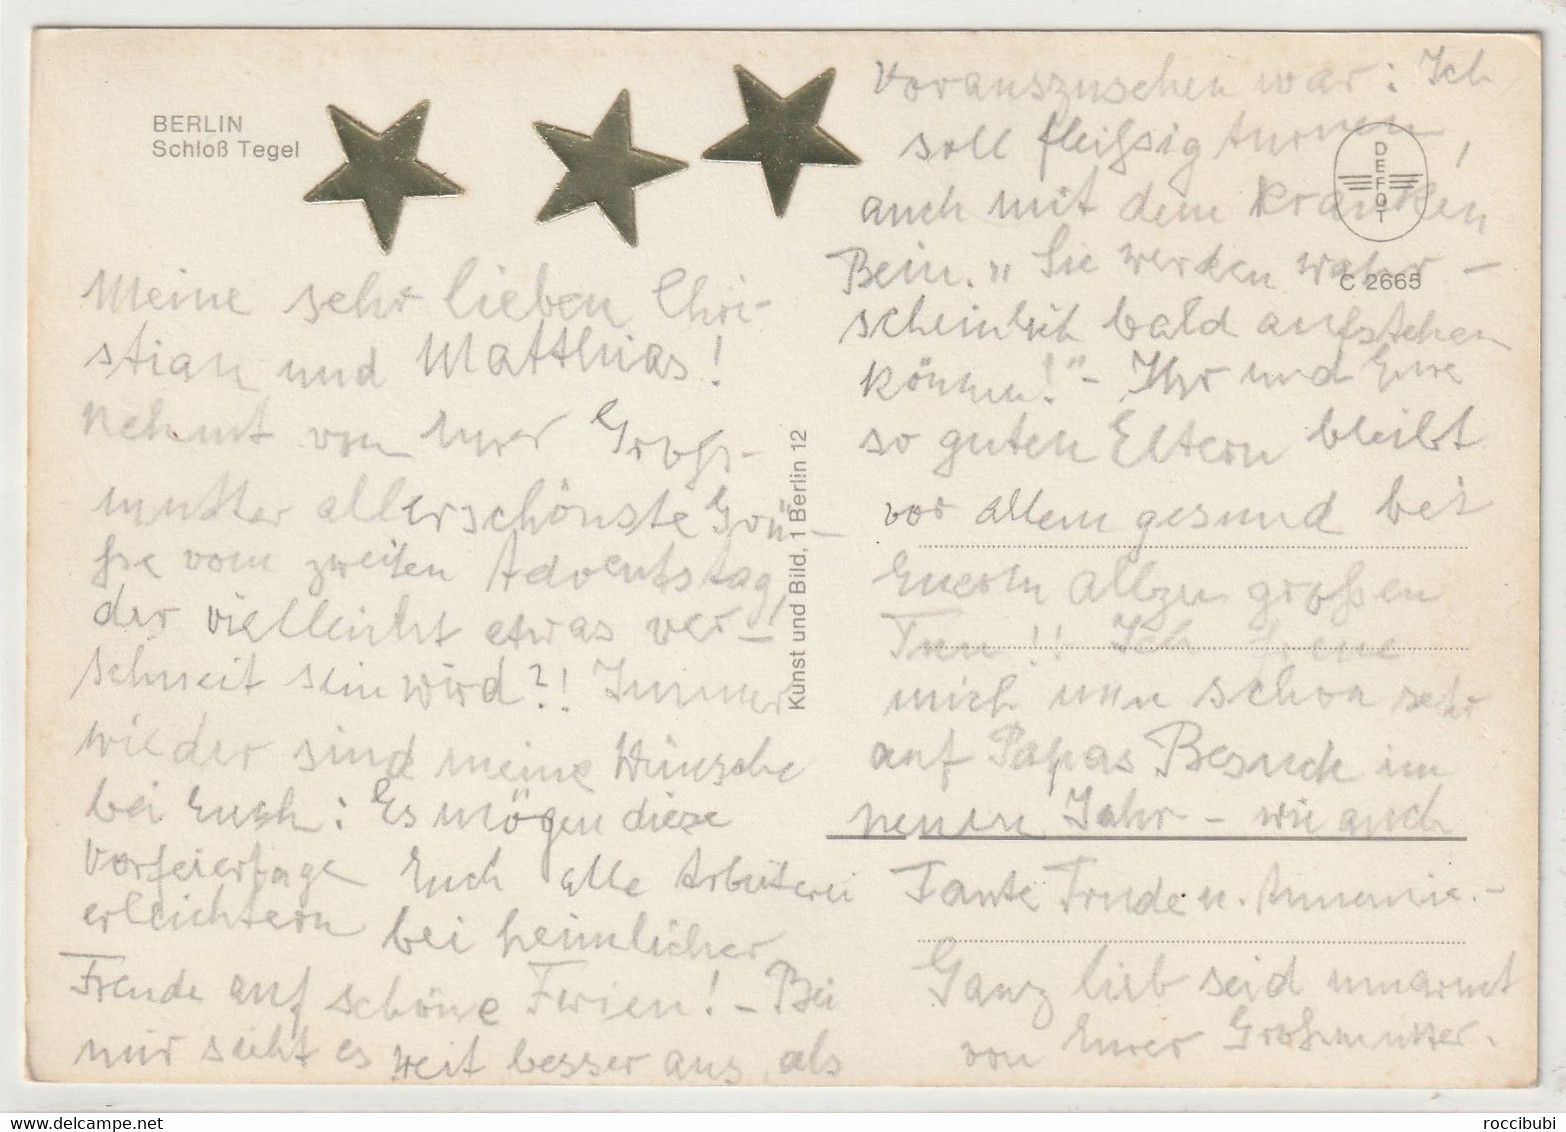 BERLIN
Schloß Tegel
Meine sehr lieben Chri-
stian und Matthias!
Nehmt von Eurer Groß-
mutter allerschönste Grü-
ße vom zweiten Adventstag,
der vielleicht etwas ver-
schneit sein wird?! Immer
wieder sind meine Wünsche
bei Euch: Es mögen diese
Vorfeiertage Euch alle Arbeiterei
erleichtern bei heimlicher
Freude auf schöne Ferien! - Bei
mir sieht es weit besser aus, als
Kunst und Bild, 1 Berlin 12
vorauszusehen war: Ich
soll fleißig turnen,
auch mit dem kranken
Bein. "Sie werden wahr-
scheinlich bald aufstehen
können!" - Ihr und Eure
so guten Eltern bleibt
vor allem gesund bei
Euerm allzu großen
Tun!! Ich freue
mich nun schon sehr
auf Papas Besuch im
neuen Jahr - wie auch
Tante Trude u. Annemie. -
Ganz lieb seid umarmt
von Eurer Großmutter.
DEFOT
C 2665
delcampe.net
roccibubi